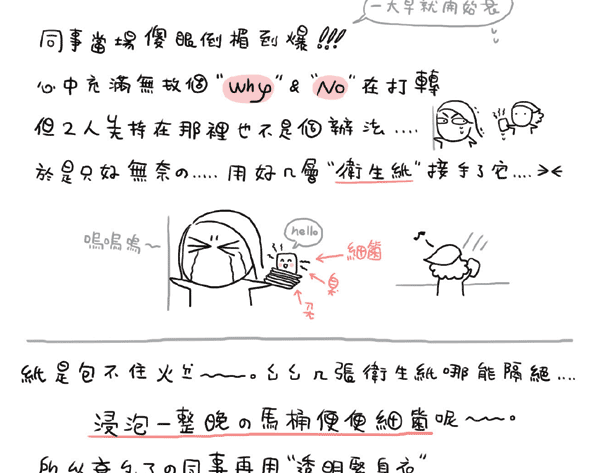 一大早就開始衰
同事當場傻眼倒楣到爆!!!
心中充滿無故個"Why"&"No"在打轉
但2人美持在那裡也不是個辦法....
於是只好無奈の.....用好几層"衛生紙"接手了它....><
hello
嗚嗚嗚~
細菌
臭
紙是包不住火ㄛ~~~。ㄠㄠ几張衛生紙哪能隔絕....
浸泡一整晚の馬桶便便細菌呢~~~。
所以
の同事再用"透明